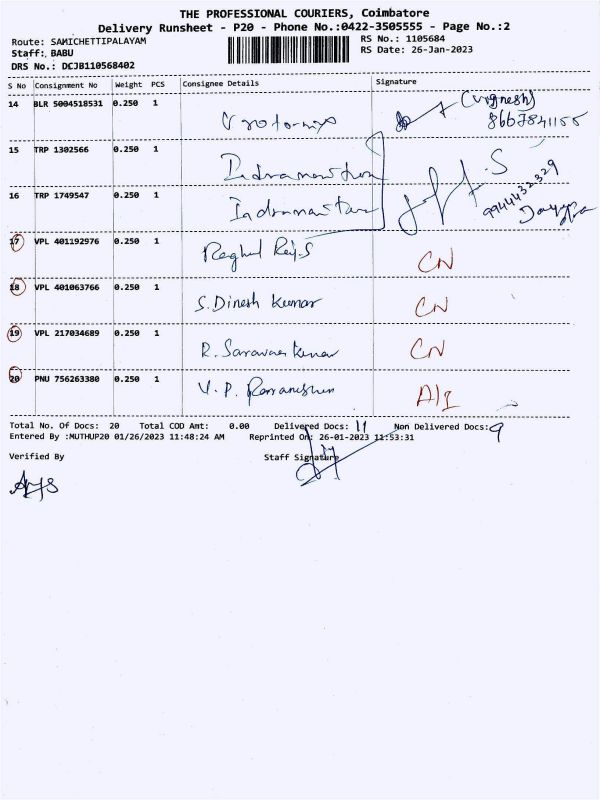 THE PROFESSIONAL COURIERS, Coimbatore
Delivery Runsheet - P20 - Phone No.:0422-3505555 - Page No.:2
Route: SAMICHETTIPALAYAM RS No.: 1105684
Staff: BABU RS Date: 26-Jan-2023
DRS No.: DCJB110568402
S No Consignment No Weight PCS Consignee Details Signature
14 BLR 5004518531 0.250 1 (Vignesh)
8667841155
15 TRP 1302566 0.250 1
16 TRP 1749547 0.250 1 9944432329
17 VPL 401192976 0.250 1 Raghul Raj.S CN
18 VPL 401063766 0.250 1 S. Dinesh Kumar CN
19 VPL 217034689 0.250 1 R. Saravana Kumar CN
20 PNU 756263380 0.250 1 V. P.
Total No. Of Docs: 20 Total COD Amt: 0.00 Delivered Docs: 11 Non Delivered Docs: 9
Entered By :MUTHUP20 01/26/2023 11:48:24 AM Reprinted On: 26-01-2023 11:53:31
Verified By Staff Signature